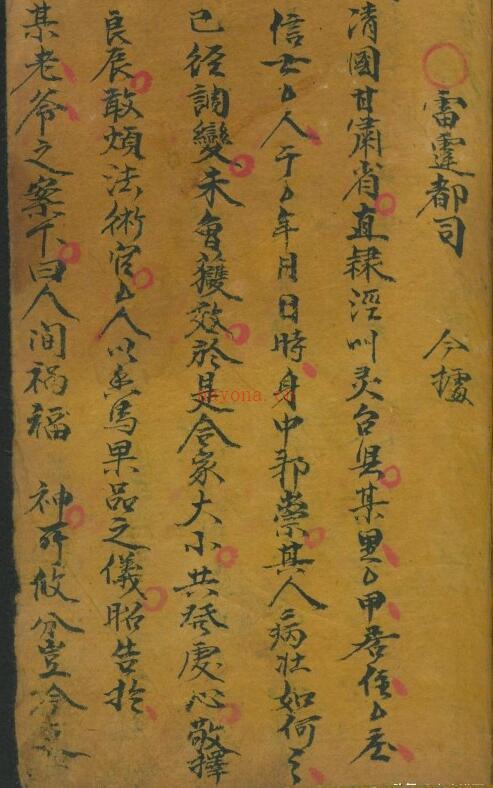 雷霆都司　今據
清國甘肅省直隸涇州灵台县某里厶甲居住厶庄
信士厶人于厶年月日時身中邪祟其人病壮如何之
已经調變未曾獲效於是合家大小共發虔心敬擇
良辰敢煩法術官厶人以香馬果品之儀昭告於
某老爷之案下曰人间祸福　神所攸分豈